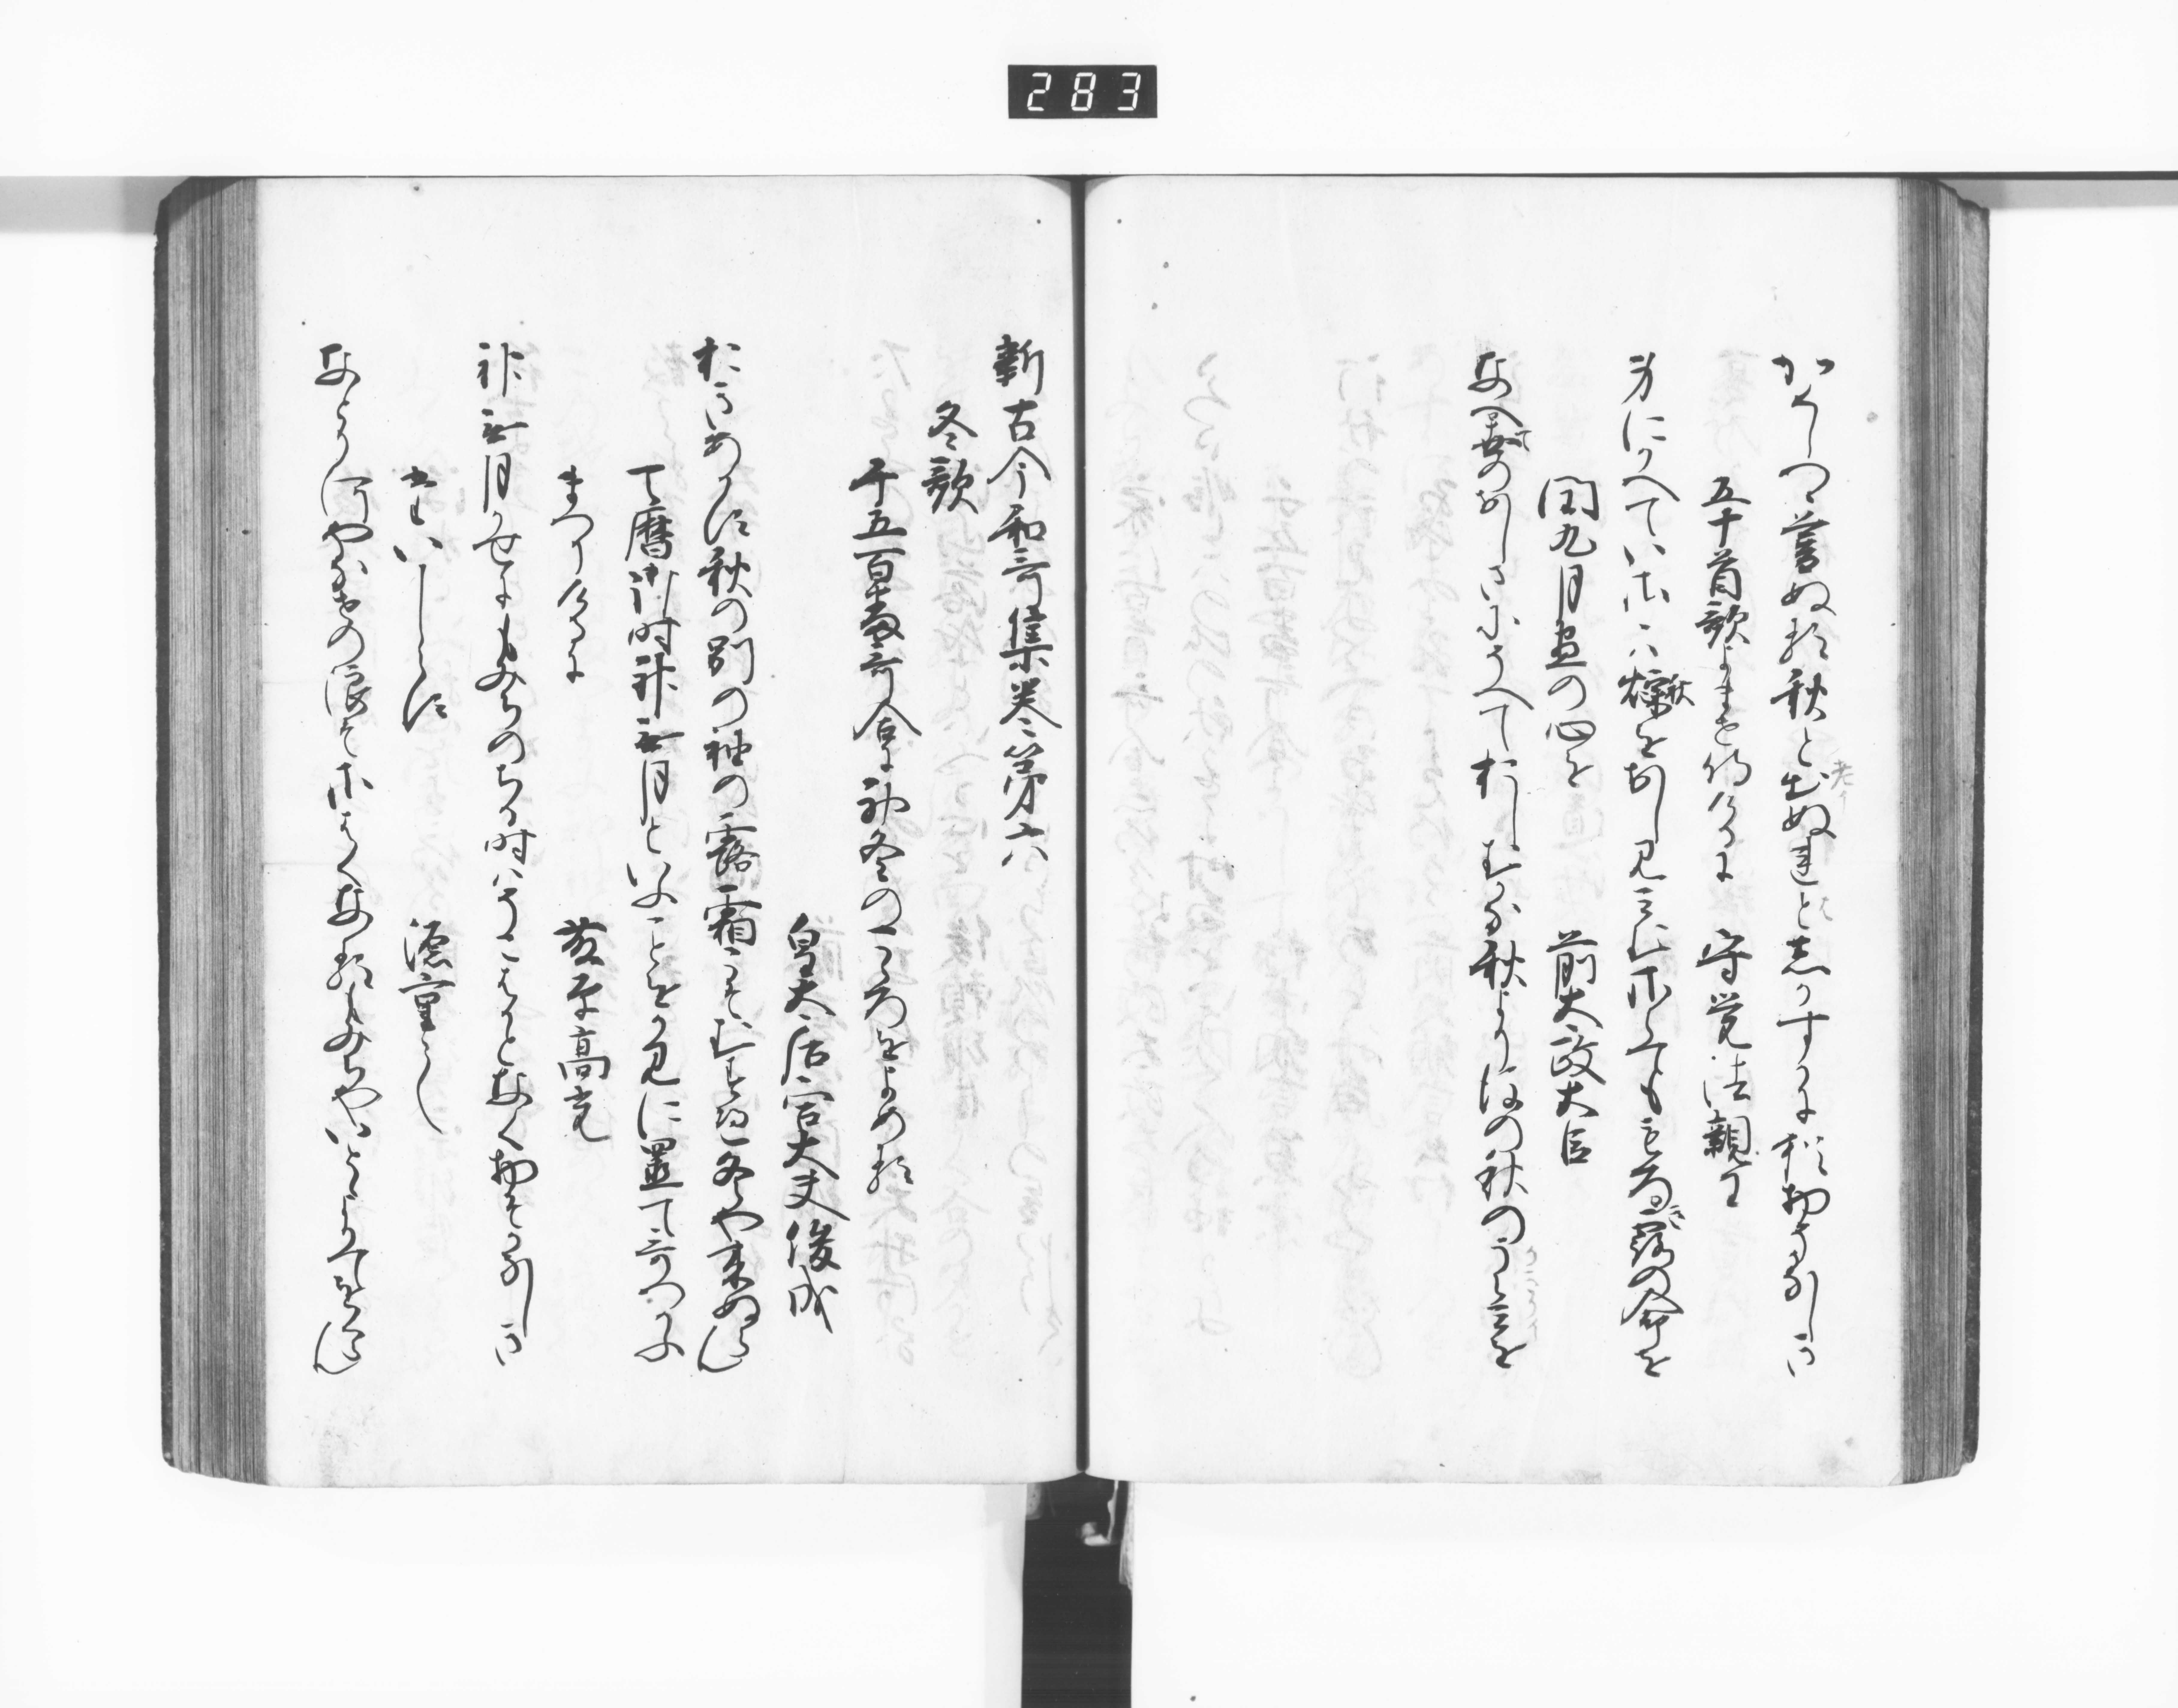 283
かくしつゝ暮ぬる秋と老ぬれとしかすかに猶物そかなしき
五十首歌よませ侍けるに　守覚法親王
身にかへていさゝは秋をおしみ見むさらてももろき露の命を
閏九月尽の心を　前太政大臣
なへて世のおしさにそへておしむかな秋より後の秋のかきりを
新古今和哥集巻第六
冬歌
千五百番哥合に初冬のこゝろをよめる
皇太后宮大夫俊成
おきあかす秋の別の袖の露霜こそむすへ冬や来ぬらん
天暦御時神無月といふことをかみに置て哥つかふ
まつりけるに　藤原高光
神無月風にもみちのちる時はそこはかとなく物そかなしき
題しらす　源重之
なとり河やなせの浪そさはくなるもみちやいとゝよりてせくらん